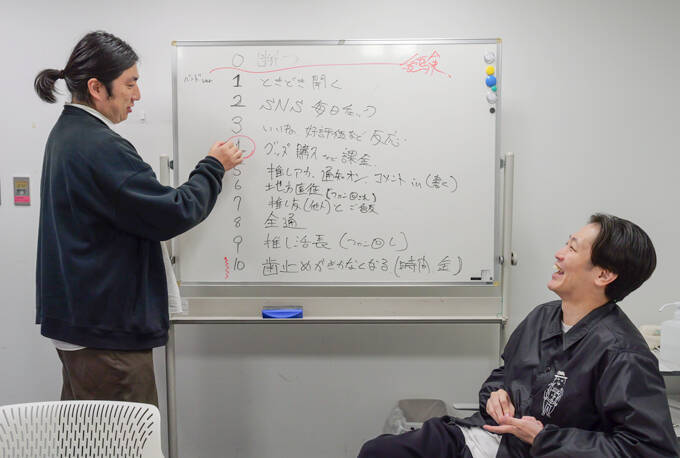 0 断つ
バンドver. 1 ときどき聞く
2 SNS 毎日チェック
3 いいね、好評価など 反応
4 グッズ購入など 課金
5 推しアカ、通知オン、コメントin(書く)
6 地方遠征
7 推し友(他人)とご飯
8 全通
9 推し活長
10 歯止めがきかなくなる(時間、金)